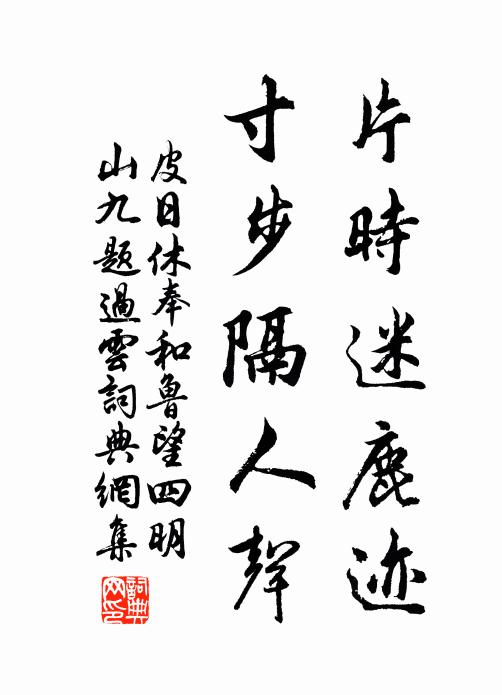 片時迷鹿迹
寸步隔人聲
皮日休奉和魯望四明
山九題過雲詞典網集
詞典網印